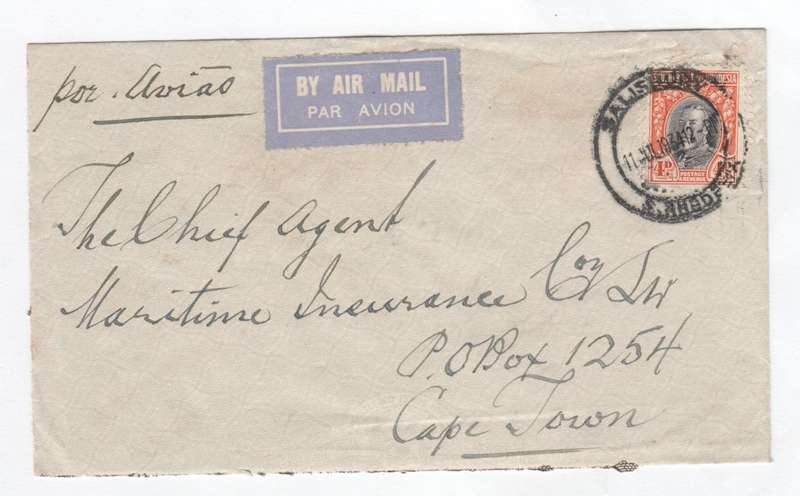 por Avião
BY AIR MAIL
PAR AVION
SALISBURY
11 JUL 1934 12-
S. RHODESIA
POSTAGE
REVENUE
The Chief Agent
Maritime Insurance Coy
P.O Box 1254
Cape Town